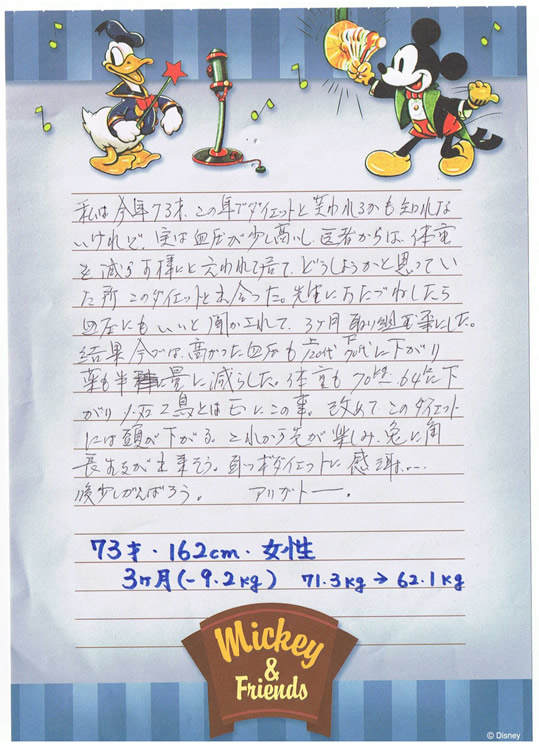 私は今年73才、この年でダイエットと笑われるかも知れな
いけれど、実は血圧が少し高いし、医者からは、体重
を減らす様にと云われて居て、どうしようかと思ってい
た所 このダイエットと出合った。先生におたづねしたら
血圧にもいいと聞かされて、3ヶ月取り組む事にした。
結果 今では、高かった血圧も 上120代 下70代に下がり
薬も半量に減らした。体重も 70kg〜64kgに下
がり 1石2鳥とは正にこの事。改めてこのダイエット
には頭が下がる。これから先が楽しみ、兎に角
長生きが出来そう。耳つぼダイエットに感謝……
後少しがんばろう。 アリガトー。
73才・162cm・女性
3ヶ月(-9.2kg) 71.3kg→62.1kg
Mickey
&
Friends
© Disney